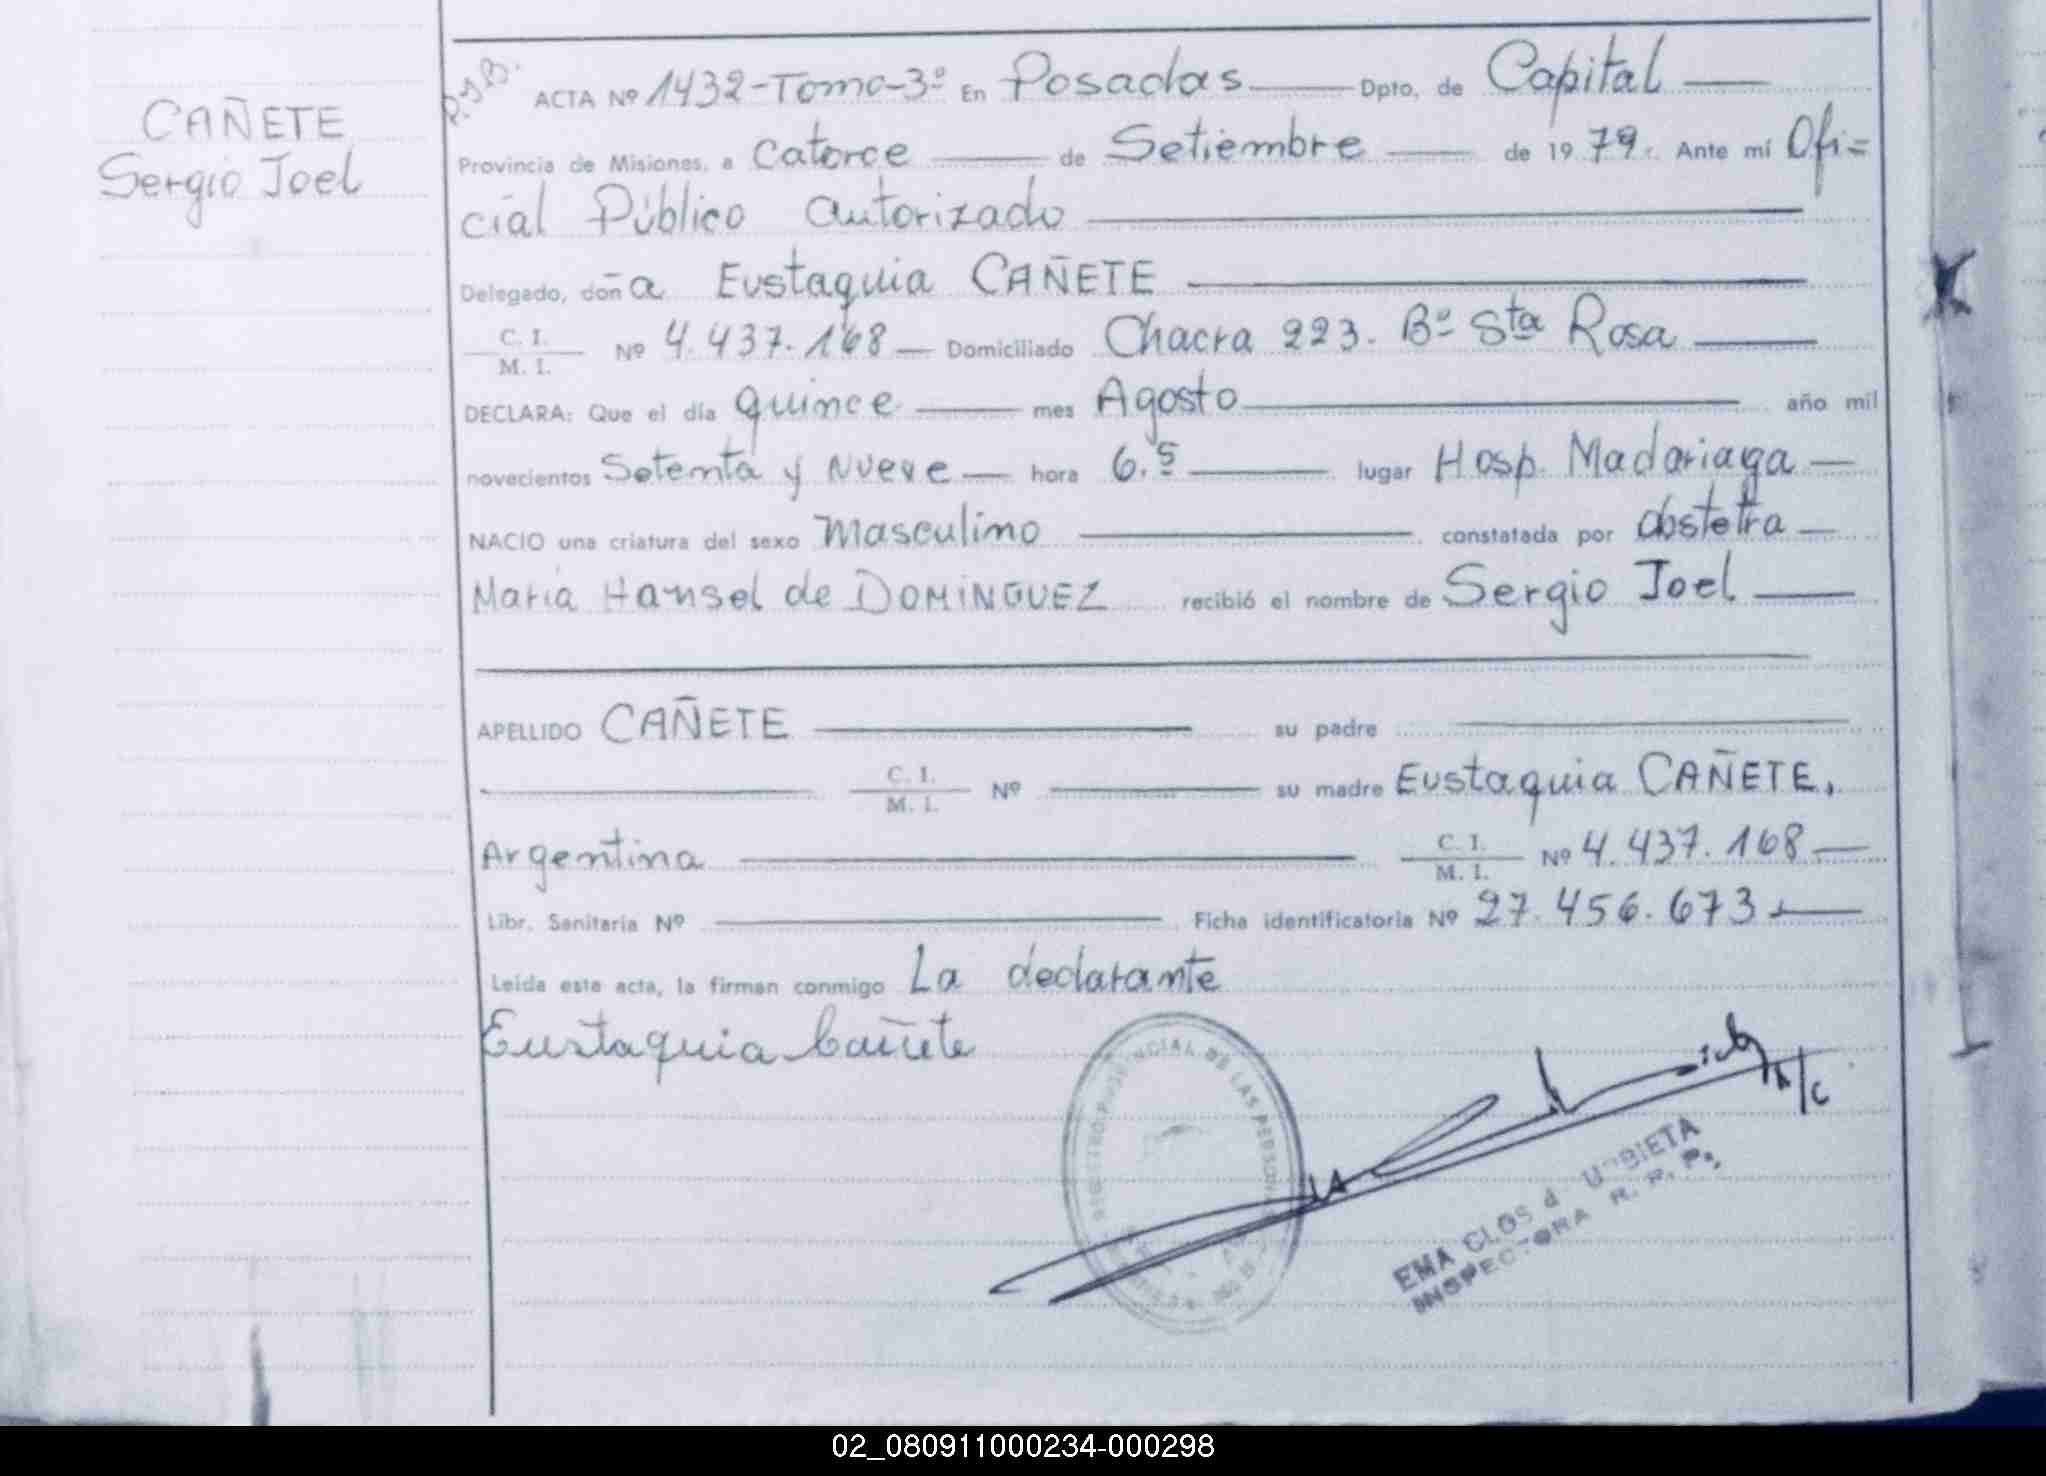 CAÑETE
Sergio Joel
P.J.B.
ACTA Nº 1432-Tomo-3º En Posadas Dpto. de Capital
Provincia de Misiones, a Catorce de Setiembre de 1979. Ante mí Ofi=
cial Público autorizado
Delegado, doña Eustaquia CAÑETE
C. I.
M. I. Nº 4.437.168 Domiciliado Chacra 223. Bº Sta Rosa
DECLARA: Que el día quince mes Agosto año mil
novecientos Setenta y Nueve hora 6.5 lugar Hosp. Madariaga
NACIO una criatura del sexo Masculino constatada por obstetra
María Hansel de DOMINGUEZ recibió el nombre de Sergio Joel
APELLIDO CAÑETE su padre
C. I.
M. I. Nº su madre Eustaquia CAÑETE,
Argentina C. I.
M. I. Nº 4.437.168
Libr. Sanitaria Nº Ficha identificatoria Nº 27.456.673
Leída esta acta, la firman conmigo La declarante
Eustaquia Cañete
DE LAS
EMA CLOS d. URBIETA
INSPECTORA R. P. P.
02_080911000234-000298